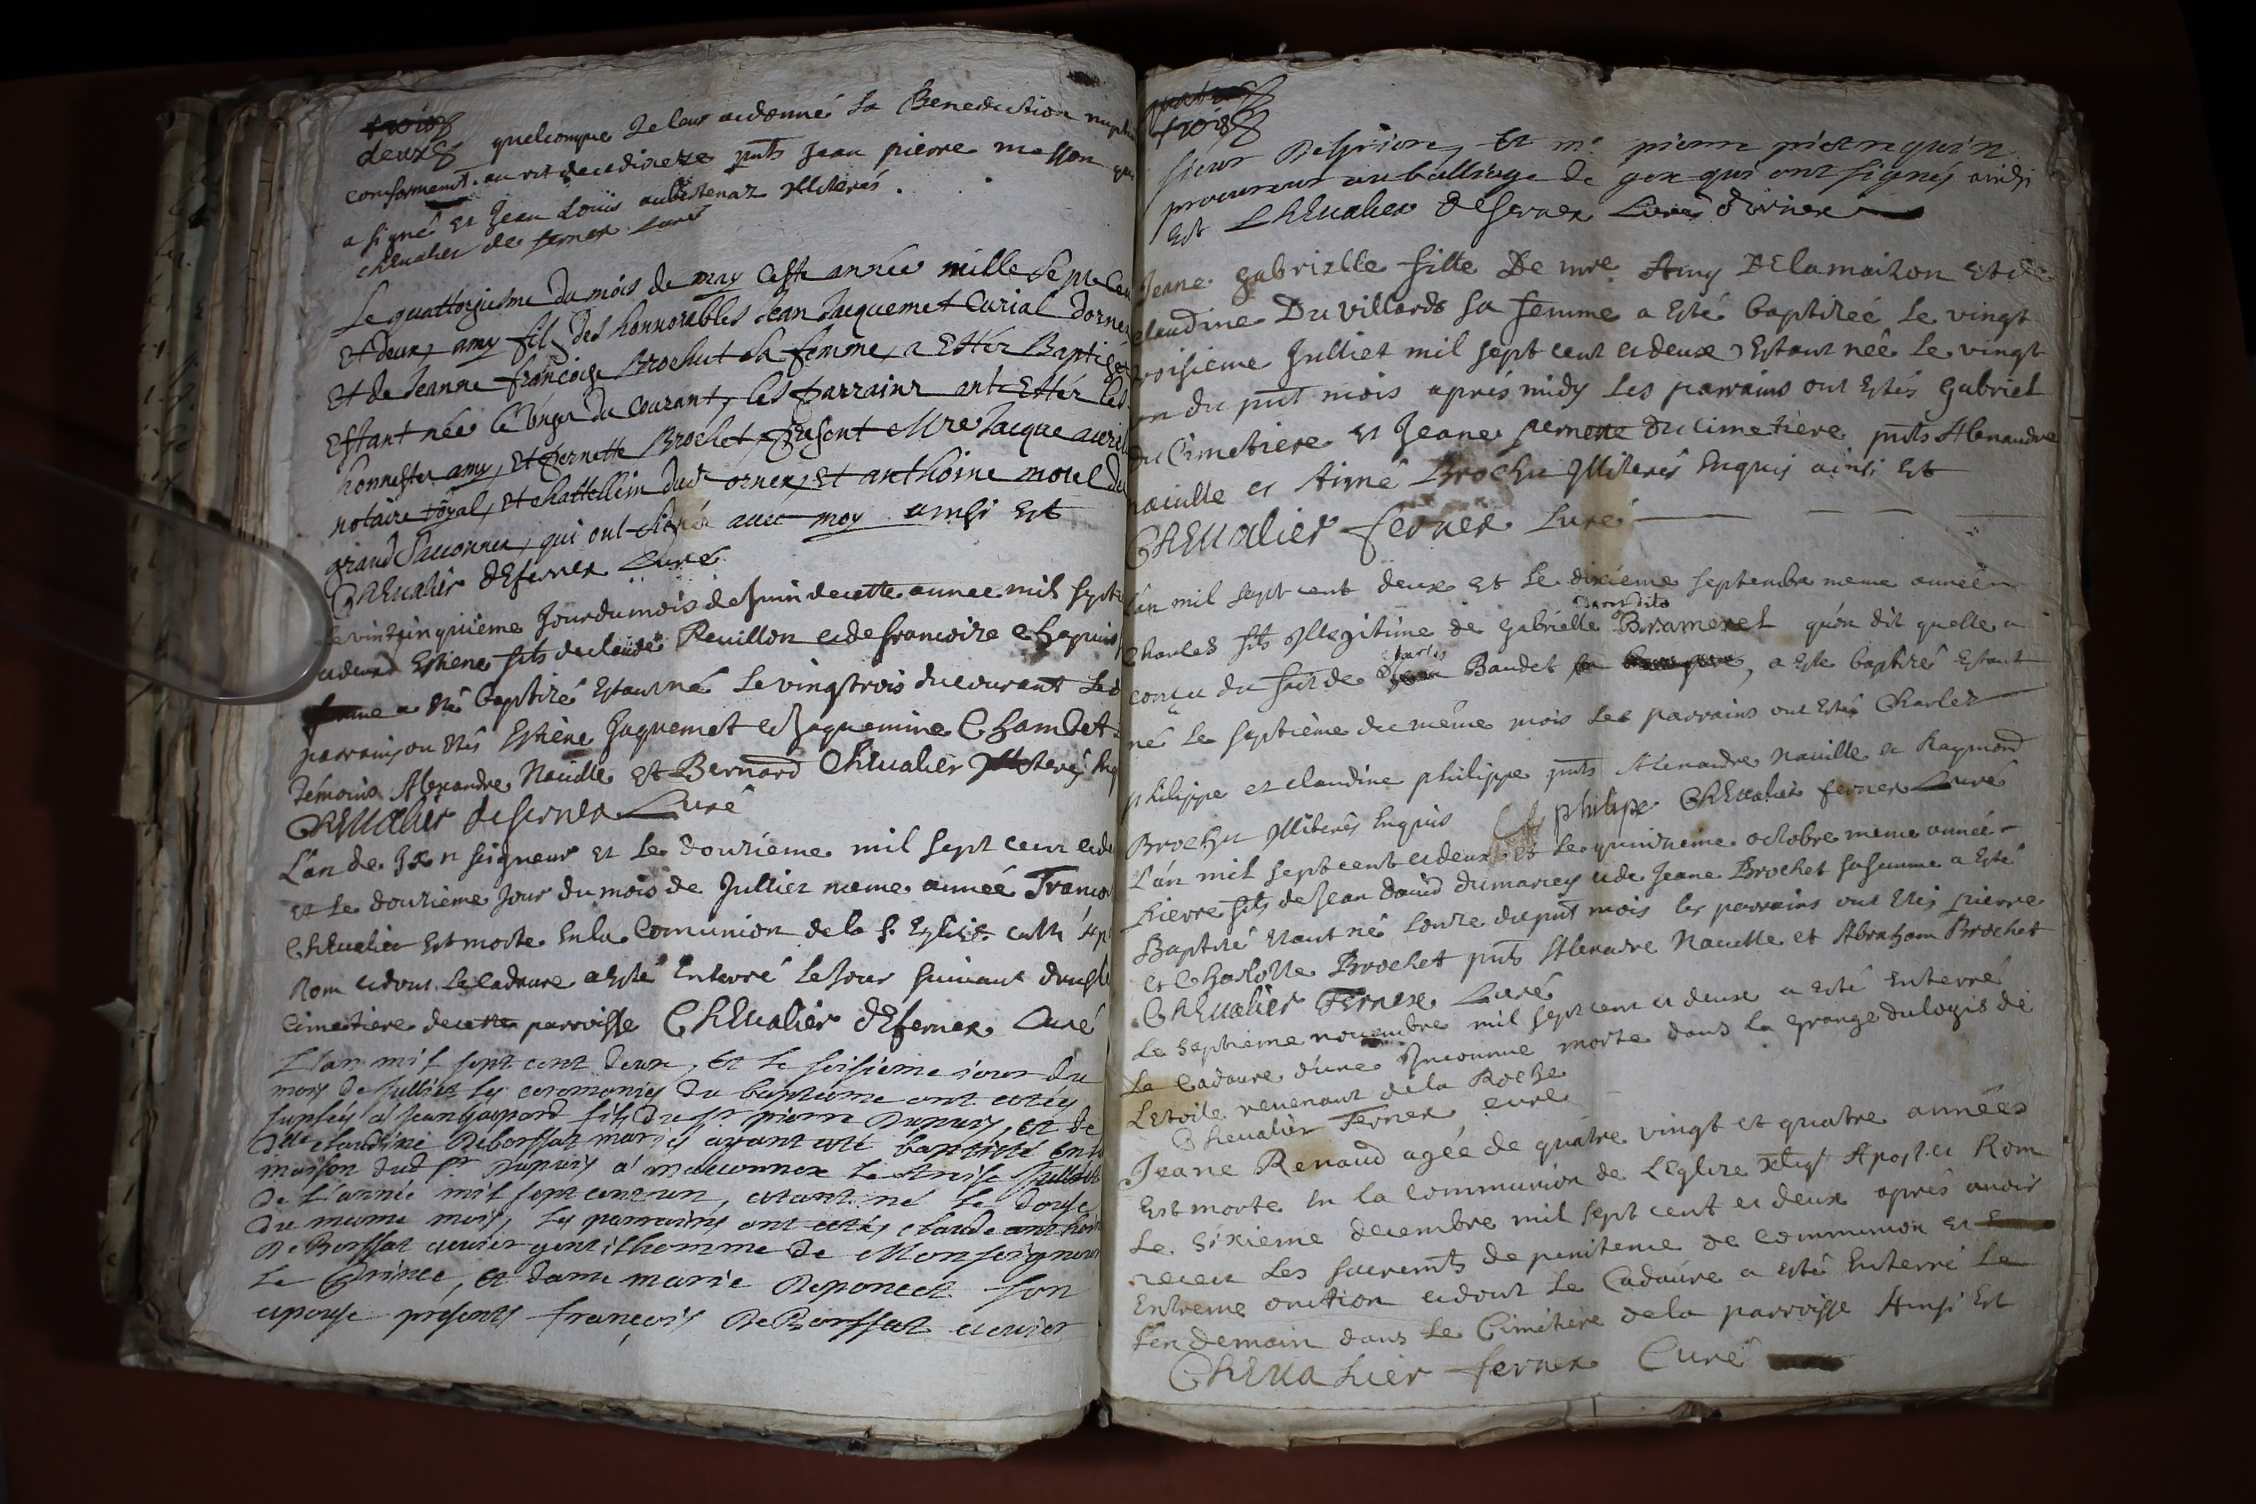 trois
deux quelconque Je leur ai donné la Benediction
conformemt. au rit de ce dioceze pnts Jean pierre masson qui
a signé et Jean Louis aubertenaz Illiterés.
chevalier de fernex Curé
Le quattorziesme du mois de may ceste année mille sept cen
et deux, amy fils des honnorables Jean Jacquemet Curial dornex
et de Jeanne françoise Brochut sa femme, a Estér Baptizé
Estant née le onze du courant, les parrains ont Estér les
honnestes amy, et pernette Brochet, present Mre Jacque
notaire royal, et chattellin dud ornex, et anthoine morel du
grand Sacconnex, qui ont signér avec moy ainsi est
Chevalier deFernex Curé
Le vintcinquieme Jour du mois de Juin de cette annee mil sept
et deux Estiene fils de claude Revillon et de francoise Chapuis
femme a eté baptizé Estant né le vingtrois du courant Les
parrains on etés Estiene Jaquemet et Jaquemine Chambet
témoins Alexandre Naville et Bernard Chevalier Illiterés
Chevalier de fernex Curé
L'an de n seigneur et le douzieme mil sept cent et de
et le douzieme Jour du mois de Jullier meme année
Chevalier est morte en la Comunion de la s. Eglise cath
Rom et dont le cadavre a esté Enterré le Jour suivant
Cimetiere de cette parroisse Chevalier deFernex Curé
L'an mil sept cent deux, et le seisieme iour du
mois de Julliet les ceremonies du baptême ont estés
a Jean gaspard fils du sr pierre Dupuis, et de
Dlle claudine Deborssat maries ayant esté baptisé en la
maison dud sr Dupuis a le treise Julliet
de l'année mil sept cent un, estant né le douse
du mesme mois, les parrains ont estés, claude anthoine
de Borssat ecuier gentilhomme de Monseigneur
Le Prince, et dame marie Deponcet son
epouse presents françois De Borssat ecuier
quatre
trois
sieur et mr pierre
procureur au balliage de gex qui ont signés ainsi
est Chevalier de fernex Curé d'ornex
Jeane gabrielle fille De mre Amy Delamaison et de
claudine Du villards sa femme a esté baptizeé le vingt
troisieme Julliet mil sept cent et deux Estant neé le vingt
un du pnt mois aprés midy Les parrains ont estés Gabriel
Du Cimetiere et Jeane pernette Ducimetiere pnts Alexandre
naville et Aimé Brochu Illiterés Enquis ainsi Est
Chevalier fernex Curé
L'an mil sept cent deux et le dixieme septembre meme année
Charles fils Illegitime de gabrielle Brameret qu'on dit quelle a
conçu du fait de charles Baudet, a esté baptizé Estant
né le septième du même mois les parrains ont estés Charles
philippe et claudine philippe pnts Alexandre naville et Raymond
Brochu Illiterés Enquis philipe Chevalier fernex Curé
L'an mil sept cent et deux et le quinzieme octobre meme année
Pierre fils de Jean david dumarcey et de Jeane Brochet sa femme a esté
Baptizé etant né lonze du pnt mois les parrains ont etés pierre
et Charlotte Brochet pnts Alexadre Naville et Abraham Brochet
Chevalier Fernex Curé
Le septieme novembre mil sept cent et deux a esté enterré
Le Cadavre d'une Inconnue morte dans la grange du logis de
Letoile revenant de la Roche
Chevalier Fernex Curé
Jeane Renaud agée de quatre vingt et quatre années
Est morte en la communion de L'Eglize Apost. et Rom
Le sixieme decembre mil sept cent et deux aprés avoir
receu Les sacremts de penitence de communion et
Extreme onction et dont le Cadavre a esté enterré Le
Lendemain dans le Cimetiere de la parroisse Ainsi Est
Chevalier fernex Curé